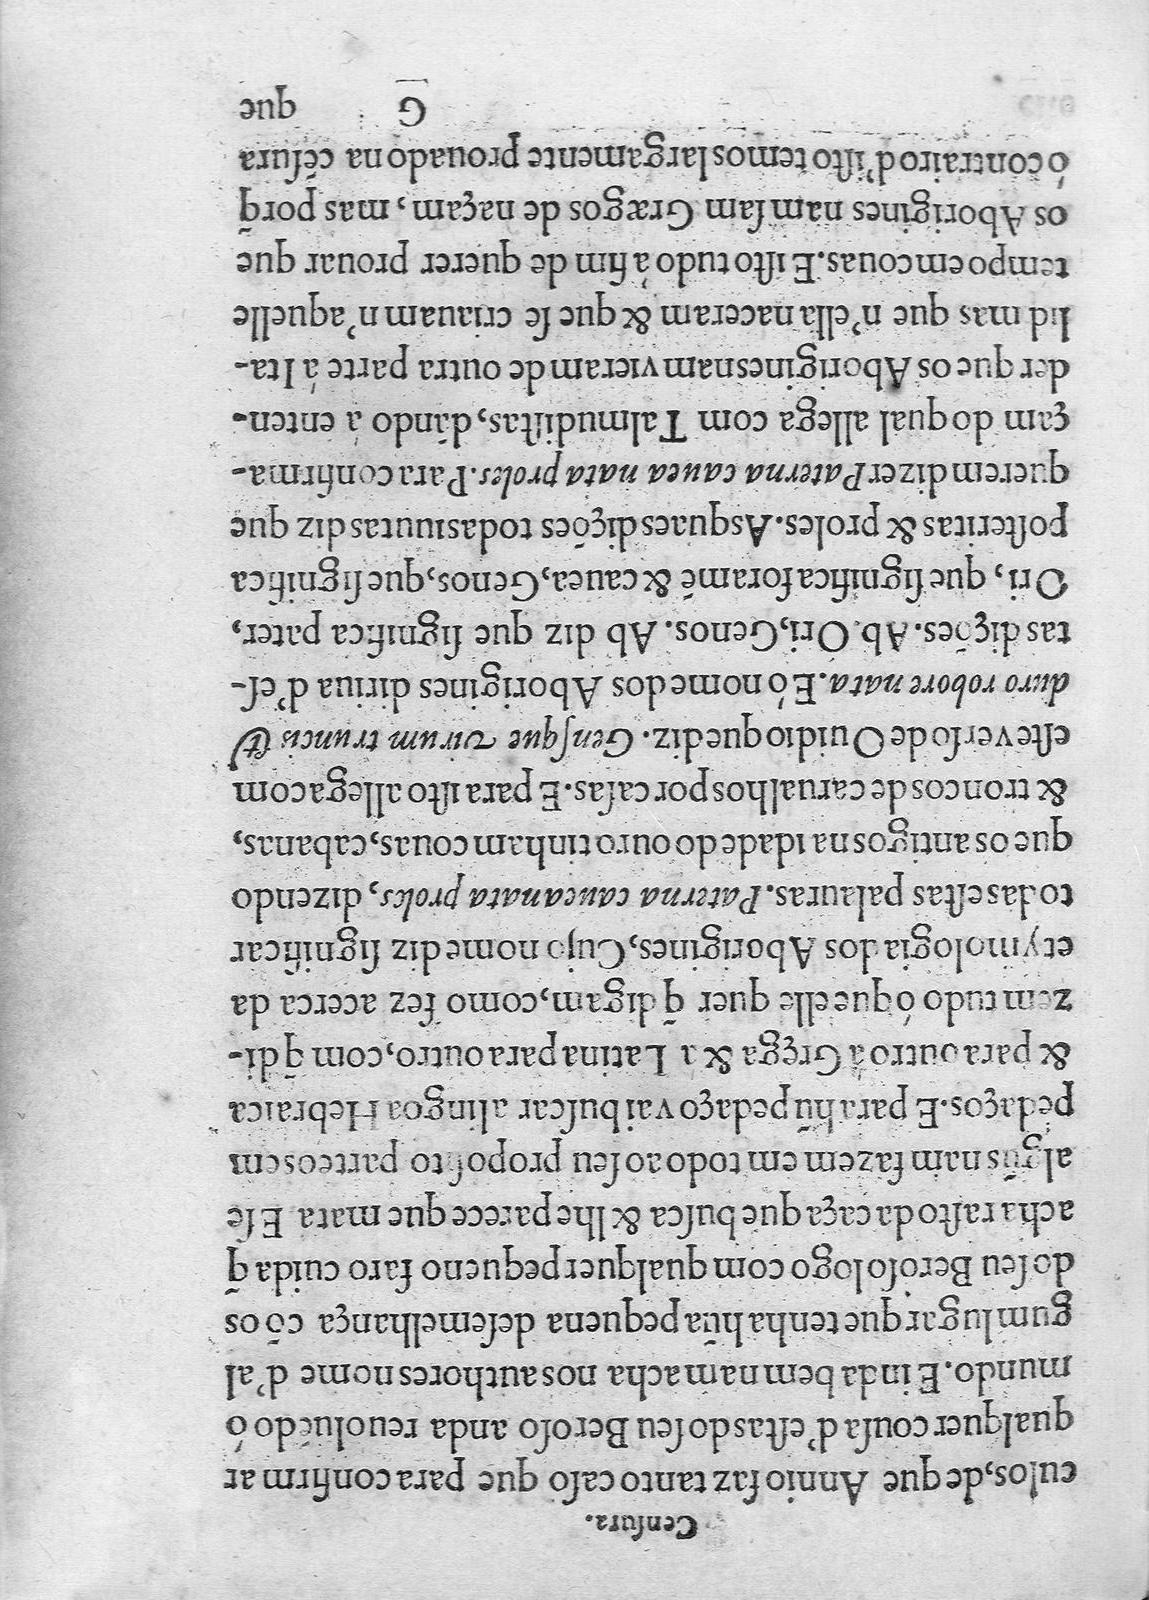 Cenſura.
culos, de que Annio faz tanto caſo que para confirmar
qualquer couſa d'eſtas do ſeu Beroſo anda reuoluẽdo ó
mundo. E inda bem nam acha nos authores nome d'al
gum lugar que tenha hũa pequena deſemelhança cõ os
do ſeu Beroſo logo com qualquer pequeno faro cuida q̃
acha raſto da caça que buſca & lhe parece que mata E ſe
algũs nam fazem em todo ao ſeu propoſito parte os em
pedaços. E para hũ pedaço vai buſcar a lingoa Hebraica
& para outro á Gręga & a Latina para outro, com q̃ di-
zem tudo ó que elle quer q̃ digam, como fez acerca da
etymologia dos Aborigines, Cujo nome diz ſignificar
todas eſtas palauras. Paterna caueanata proles, dizendo
que os antigos na idade do ouro tinham couas, cabanas,
& troncos de carualhos por caſas. E para iſto allega com
eſte verſo de Ouidio que diz. Genſque virum truncis &
duro robore nata. E ó nome dos Aborigines diriua d'eſ-
tas dições. Ab. Ori, Genos. Ab diz que ſignifica pater,
Ori, que ſignifica foramẽ & cauea, Genos, que ſignifica
poſteritas & proles. As quaes dições todas iuntas diz que
querem dizer Paterna cauea nata proles. Para confirma-
çam do qual allega com Talmudiſtas, dãndo á enten-
der que os Aborigines nam vieram de outra parte á Ita-
lia mas que n'ella naceram & que ſe criauam n'aquelle
tempo em couas. E iſto tudo á fim de querer prouar que
os Aborigines nam ſam Græcos de naçam, mas porq̃
ó contrairo d'iſto temos largamente prouado na cẽſura
G que